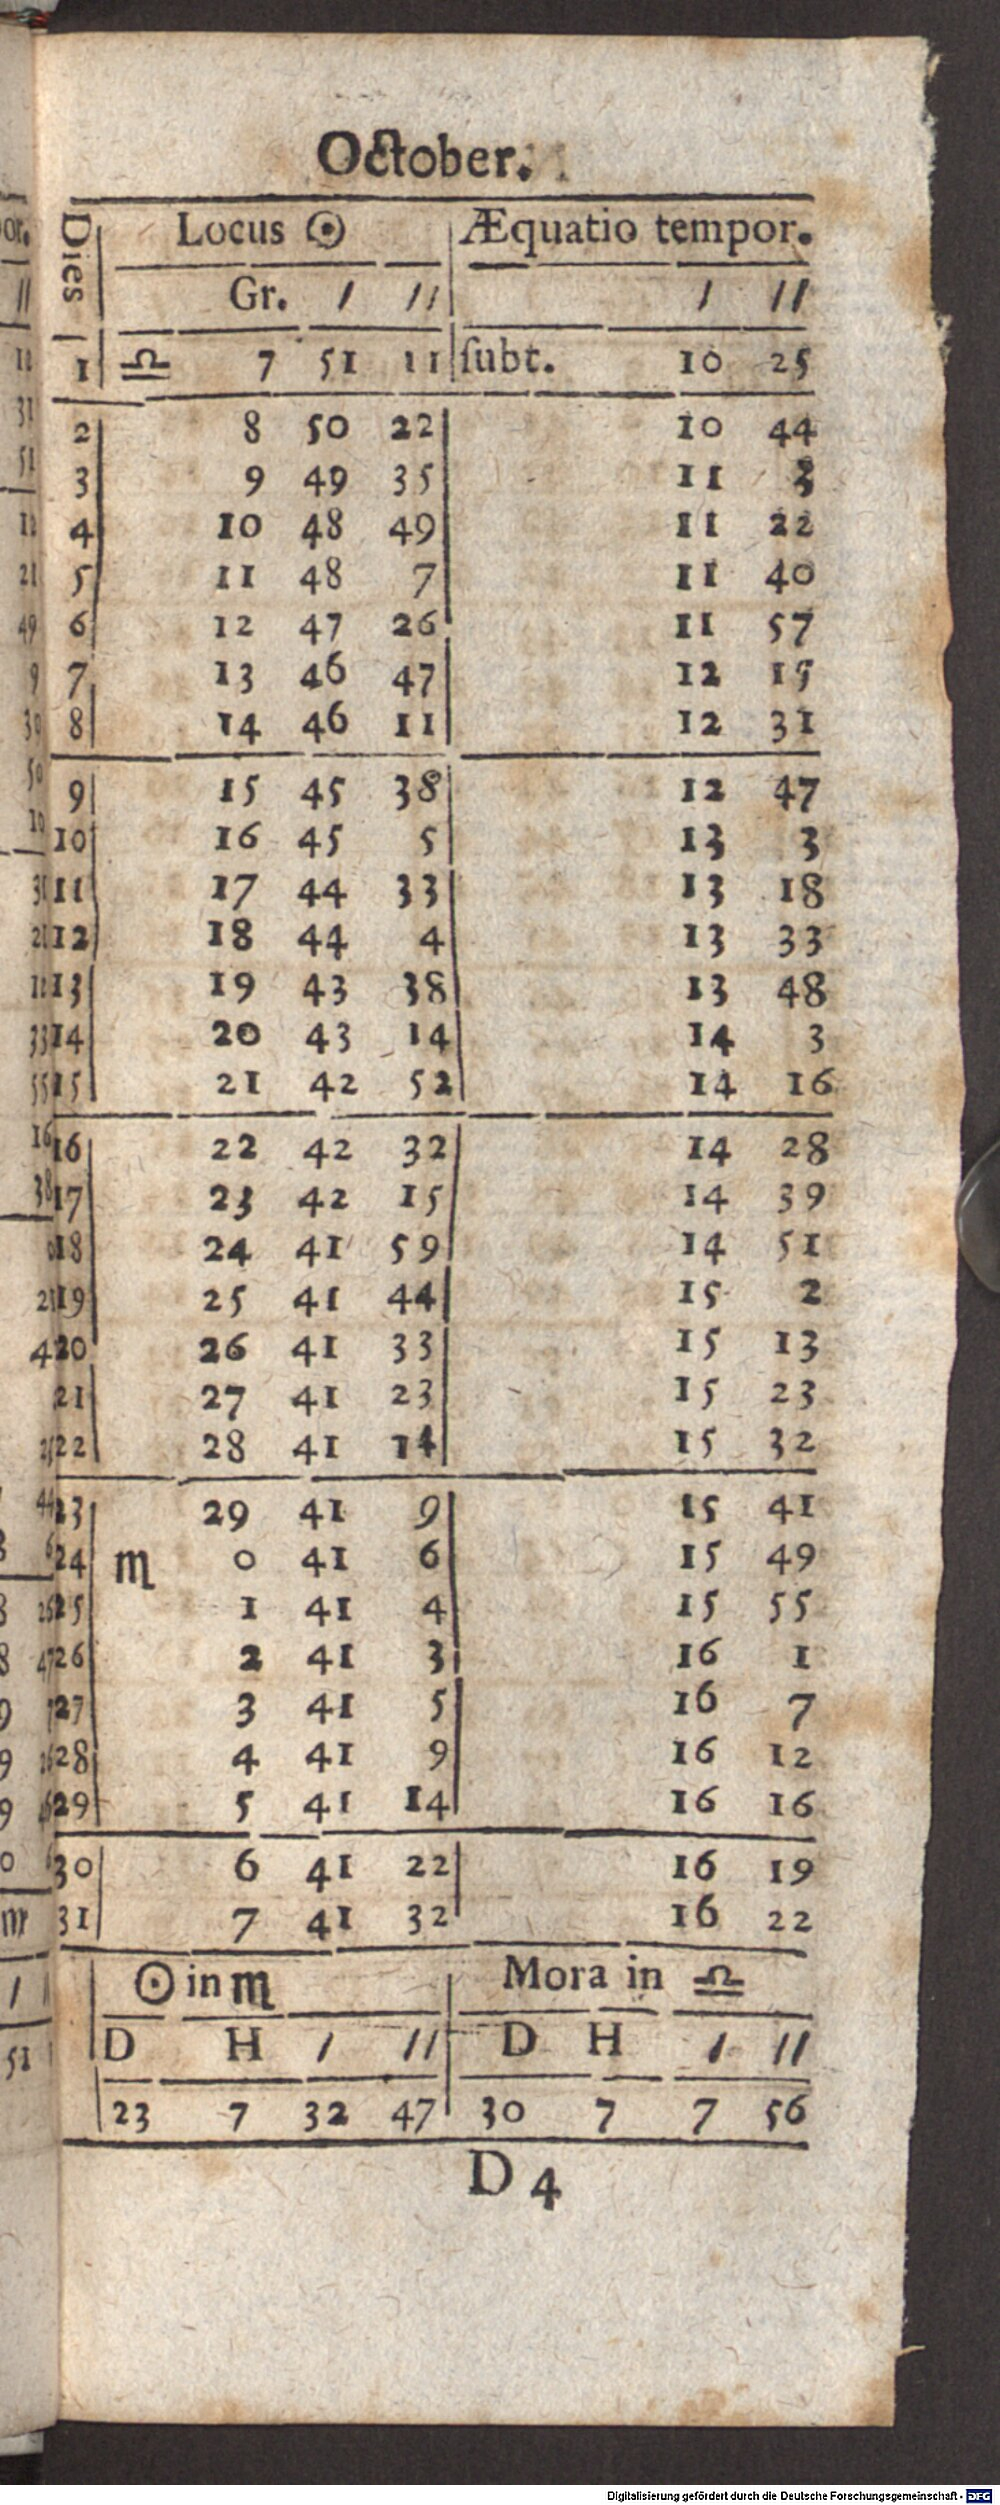 October.
Dies Locus ☉ Æquatio tempor.
Gr. ′ ″ ′ ″
1 ♎ 7 51 11 ſubt. 10 25
2 8 50 22 10 44
3 9 49 35 11 3
4 10 48 49 11 22
5 11 48 7 11 40
6 12 47 26 11 57
7 13 46 47 12 15
8 14 46 11 12 31
9 15 45 38 12 47
10 16 45 5 13 3
11 17 44 33 13 18
12 18 44 4 13 33
13 19 43 38 13 48
14 20 43 14 14 3
15 21 42 52 14 16
16 22 42 32 14 28
17 23 42 15 14 39
18 24 41 59 14 51
19 25 41 44 15 2
20 26 41 33 15 13
21 27 41 23 15 23
22 28 41 14 15 32
23 29 41 9 15 41
24 ♏ 0 41 6 15 49
25 1 41 4 15 55
26 2 41 3 16 1
27 3 41 5 16 7
28 4 41 9 16 12
29 5 41 14 16 16
30 6 41 22 16 19
31 7 41 32 16 22
☉ in ♏ Mora in ♎
D H ′ ″ D H ′ ″
23 7 32 47 30 7 7 56
D 4
Digitalisierung gefördert durch die Deutsche Forschungsgemeinschaft - DFG